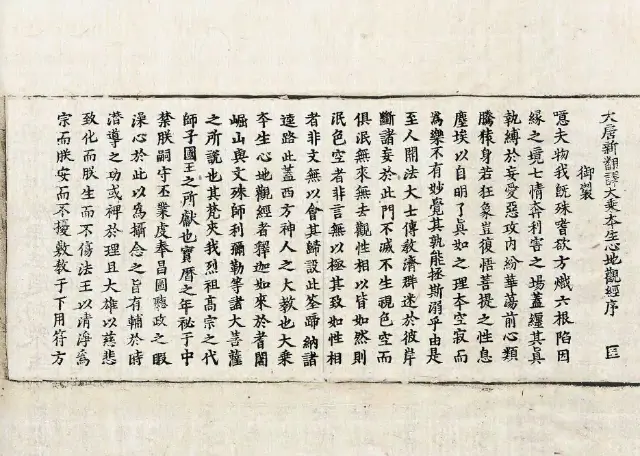 大唐新翻譯大乘本生心地觀經序 臣
御製
噫夫物我旣殊嗜欲方熾六根陷因
緣之境七情奔利害之場蓋纏其眞
執縛於妄愛惡攻內紛華蕩前心類
騰猿身若狂象豈復悟菩提之性息
塵埃以自明了眞如之理本空寂而
爲樂不有妙覺其孰能拯斯溺乎由是
至人開法大士傳教濟群迷於彼岸
斷諸妄於此門不滅不生視色空而
俱泯無來無去觀性相以皆如然則
泯色空者非言無以極其致如性相
者非文無以會其歸設此筌蹄納諸
遠路此蓋西方神人之大教也大乘
本生心地觀經者釋迦如來於耆闍
崛山與文殊師利彌勒等諸大菩薩
之所說也其梵夾我烈祖高宗之代
師子國王之所獻也寶曆之年秘于中
禁朕嗣守丕業虔奉昌圖聽政之暇
澡心於此以爲攝念之旨有輔於時
潛導之功或裨於理且大雄以慈悲
致化而朕生而不傷法王以清淨爲
宗而朕安而不擾敷教于下用符方